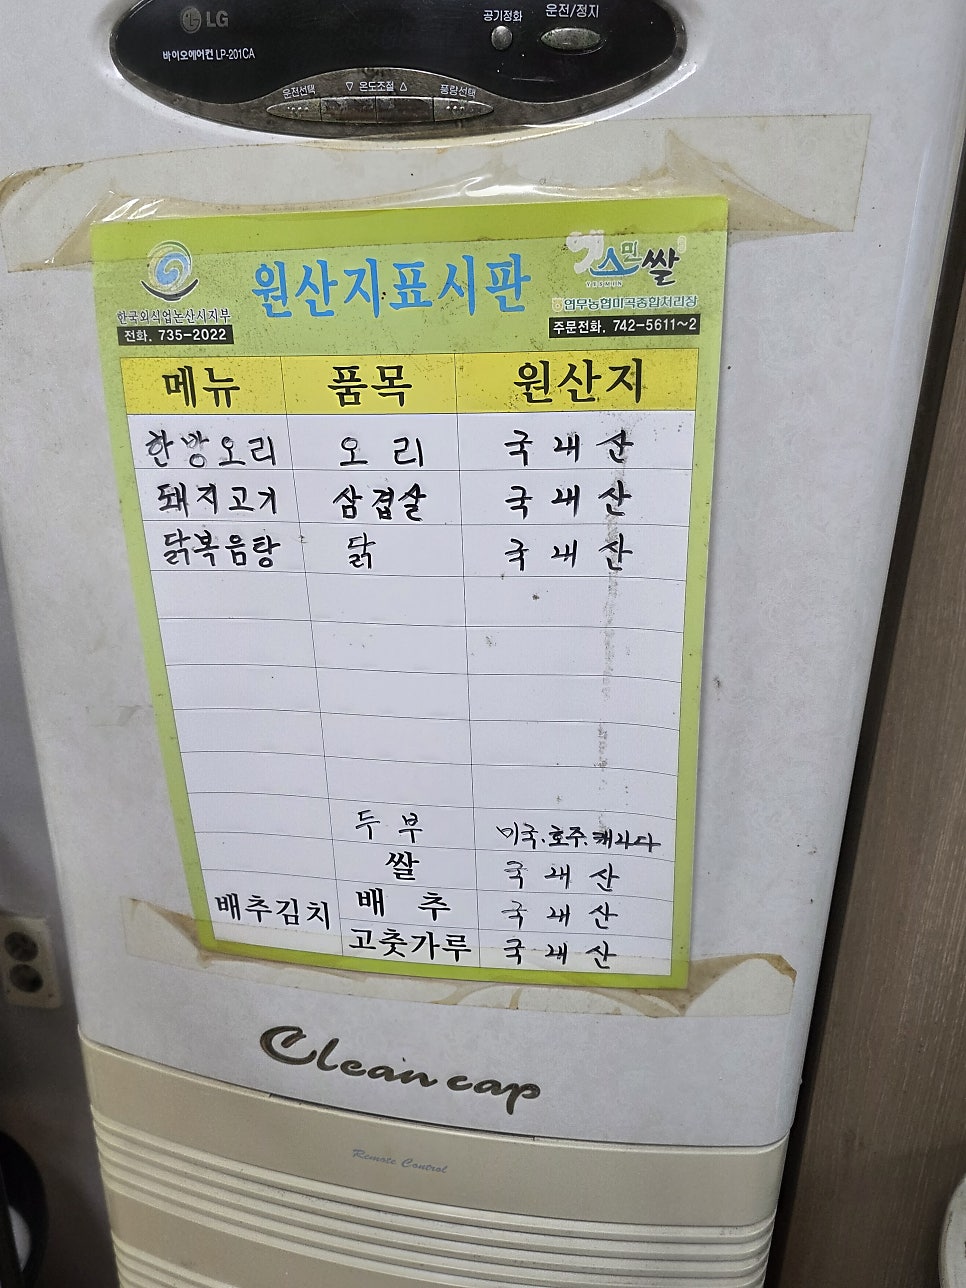 LG
바이오에어컨 LP-201CA
공기정화 운전/정지
운전선택 ▽ 온도조절 △ 풍량선택
한국외식업논산시지부
전화. 735-2022
원산지표시판
예스민쌀
YESMIN
연무농협미곡종합처리장
주문전화. 742-5611~2
메뉴 품목 원산지
한방오리 오리 국내산
돼지고기 삼겹살 국내산
닭복음탕 닭 국내산
두부 미국.호주.캐나다
쌀 국내산
배추김치 배추 국내산
고춧가루 국내산
Clean cap
Remote Control